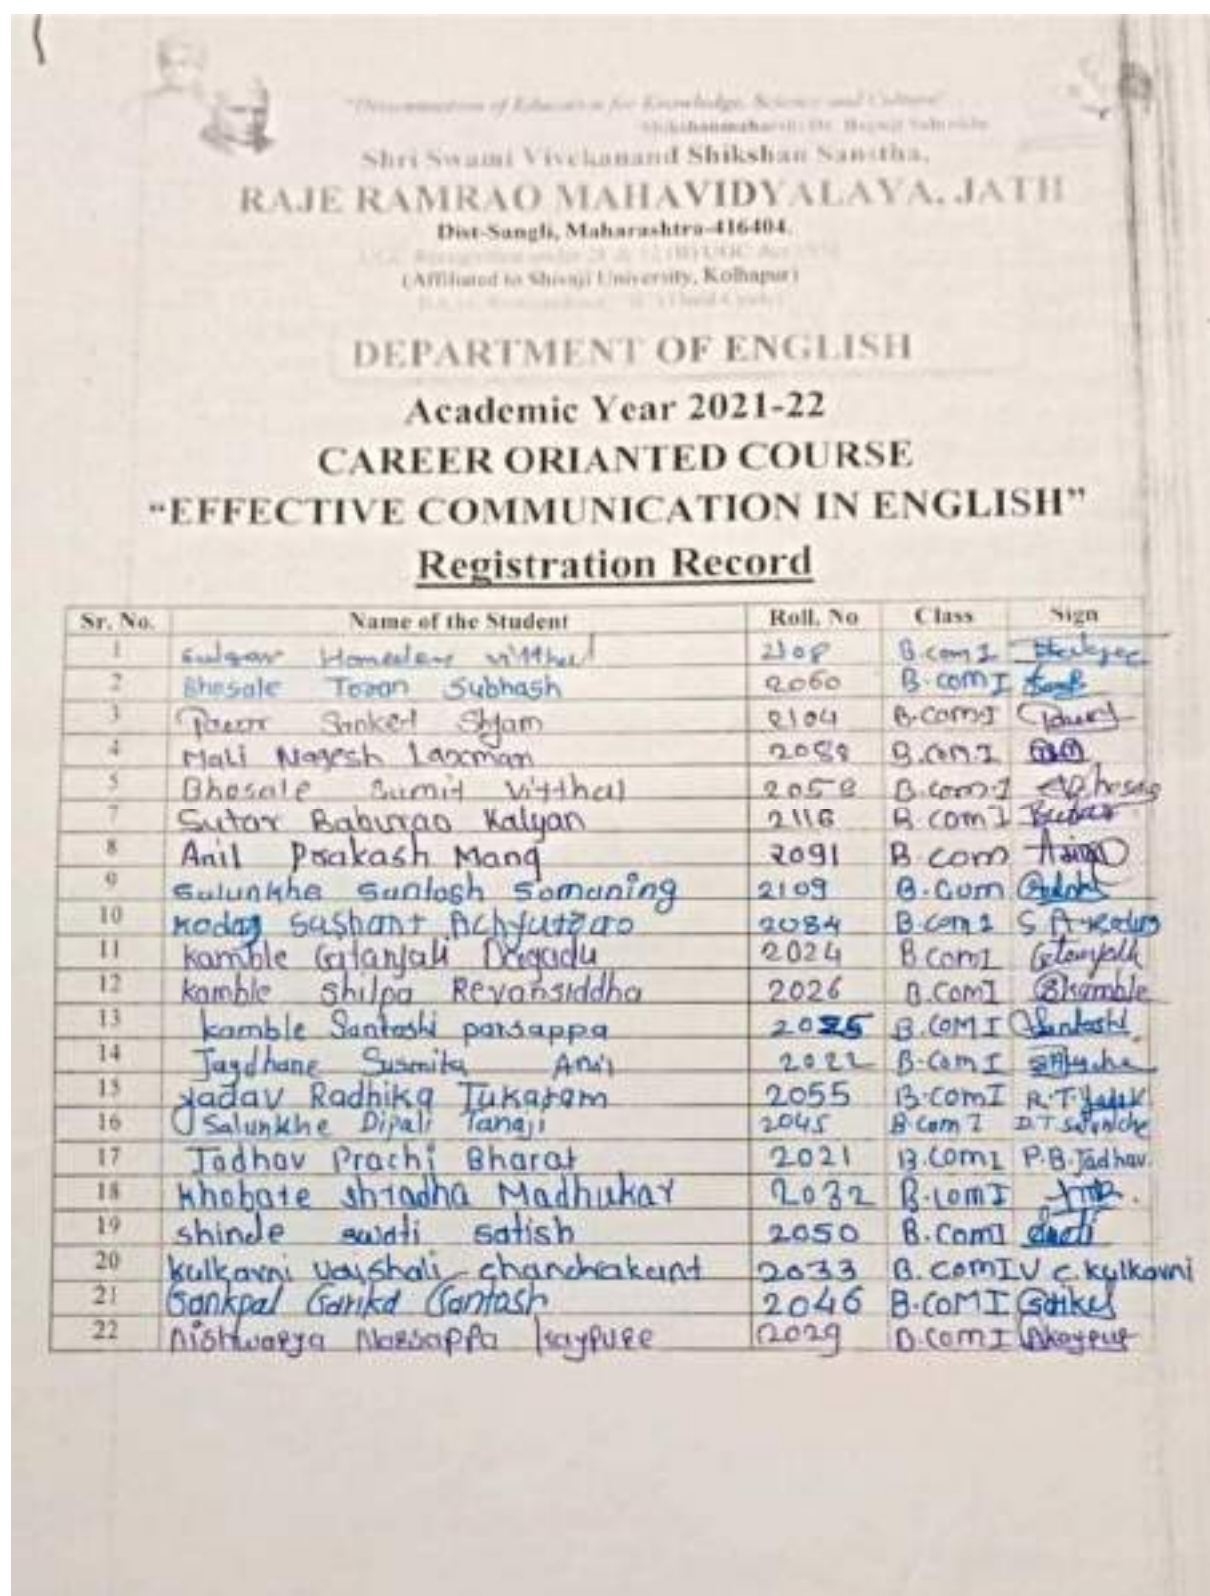 "Dissemination of Education for Knowledge, Science and Culture"
Shikshanmaharshi Dr. Bapuji Salunkhe
Shri Swami Vivekanand Shikshan Sanstha,
RAJE RAMRAO MAHAVIDYALAYA, JATH
Dist-Sangli, Maharashtra-416404.
(Affiliated to Shivaji University, Kolhapur)
DEPARTMENT OF ENGLISH
Academic Year 2021-22
CAREER ORIANTED COURSE
“EFFECTIVE COMMUNICATION IN ENGLISH”
Registration Record
Sr. No. Name of the Student Roll. No Class Sign
1 vitthal 2108 B.com I
2 Bhosale Tosan Subhash 2060 B.com I
3 Shyam 2104 B.com I
4 Mali Nagesh Laxman B.com.I
5 Bhosale Sumit Vitthal 2058 B.com.I
7 Sutar Baburao Kalyan 2116 B com I
8 Anil Prakash Mang 2091 B.com
9 Salunkhe Santosh Somaning 2109 B.Com
10 Kodag Sushant Achyutrao 2084 B.com I
11 kamble Gitanjali Dagadu 2024 B.com I
12 kamble Shilpa Revansiddha 2026 B.ComI Skamble
13 kamble Santoshi parsappa 2025 B.COM I Santoshi
14 Jagdhane Susmita Anil 2022 B.Com I
15 yadav Radhika Tukaram 2055 B.comI R.T.Yadav
16 Salunkhe Dipali Tanaji 2045 B.Com I D.T.Salunkhe
17 Jadhav Prachi Bharat 2021 B.ComI P.B.Jadhav.
18 Khobate shradha Madhukar 2032 B.comI
19 shinde swati satish 2050 B.ComI
20 kulkarni vaishali chandrakant 2033 B.comI V c.kulkarni
21 Sankpal Sarika Santosh 2046 B.COMI Sarika
22 Aishwarya 2029 B.com I